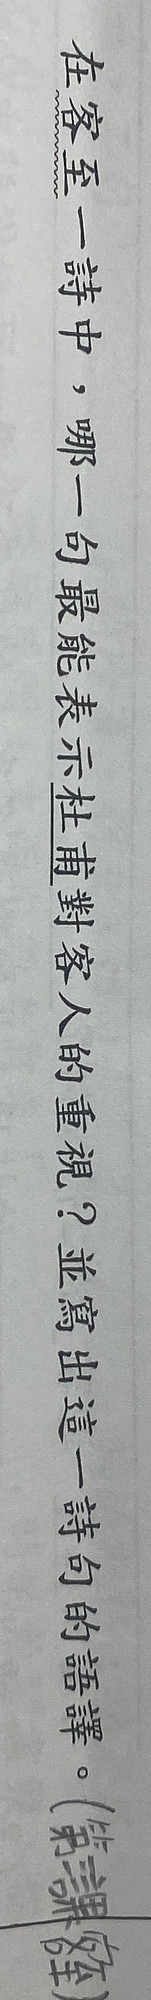 在客至一詩中，哪一句最能表示杜甫對客人的重視？並寫出這一詩句的語譯。(第課客至)